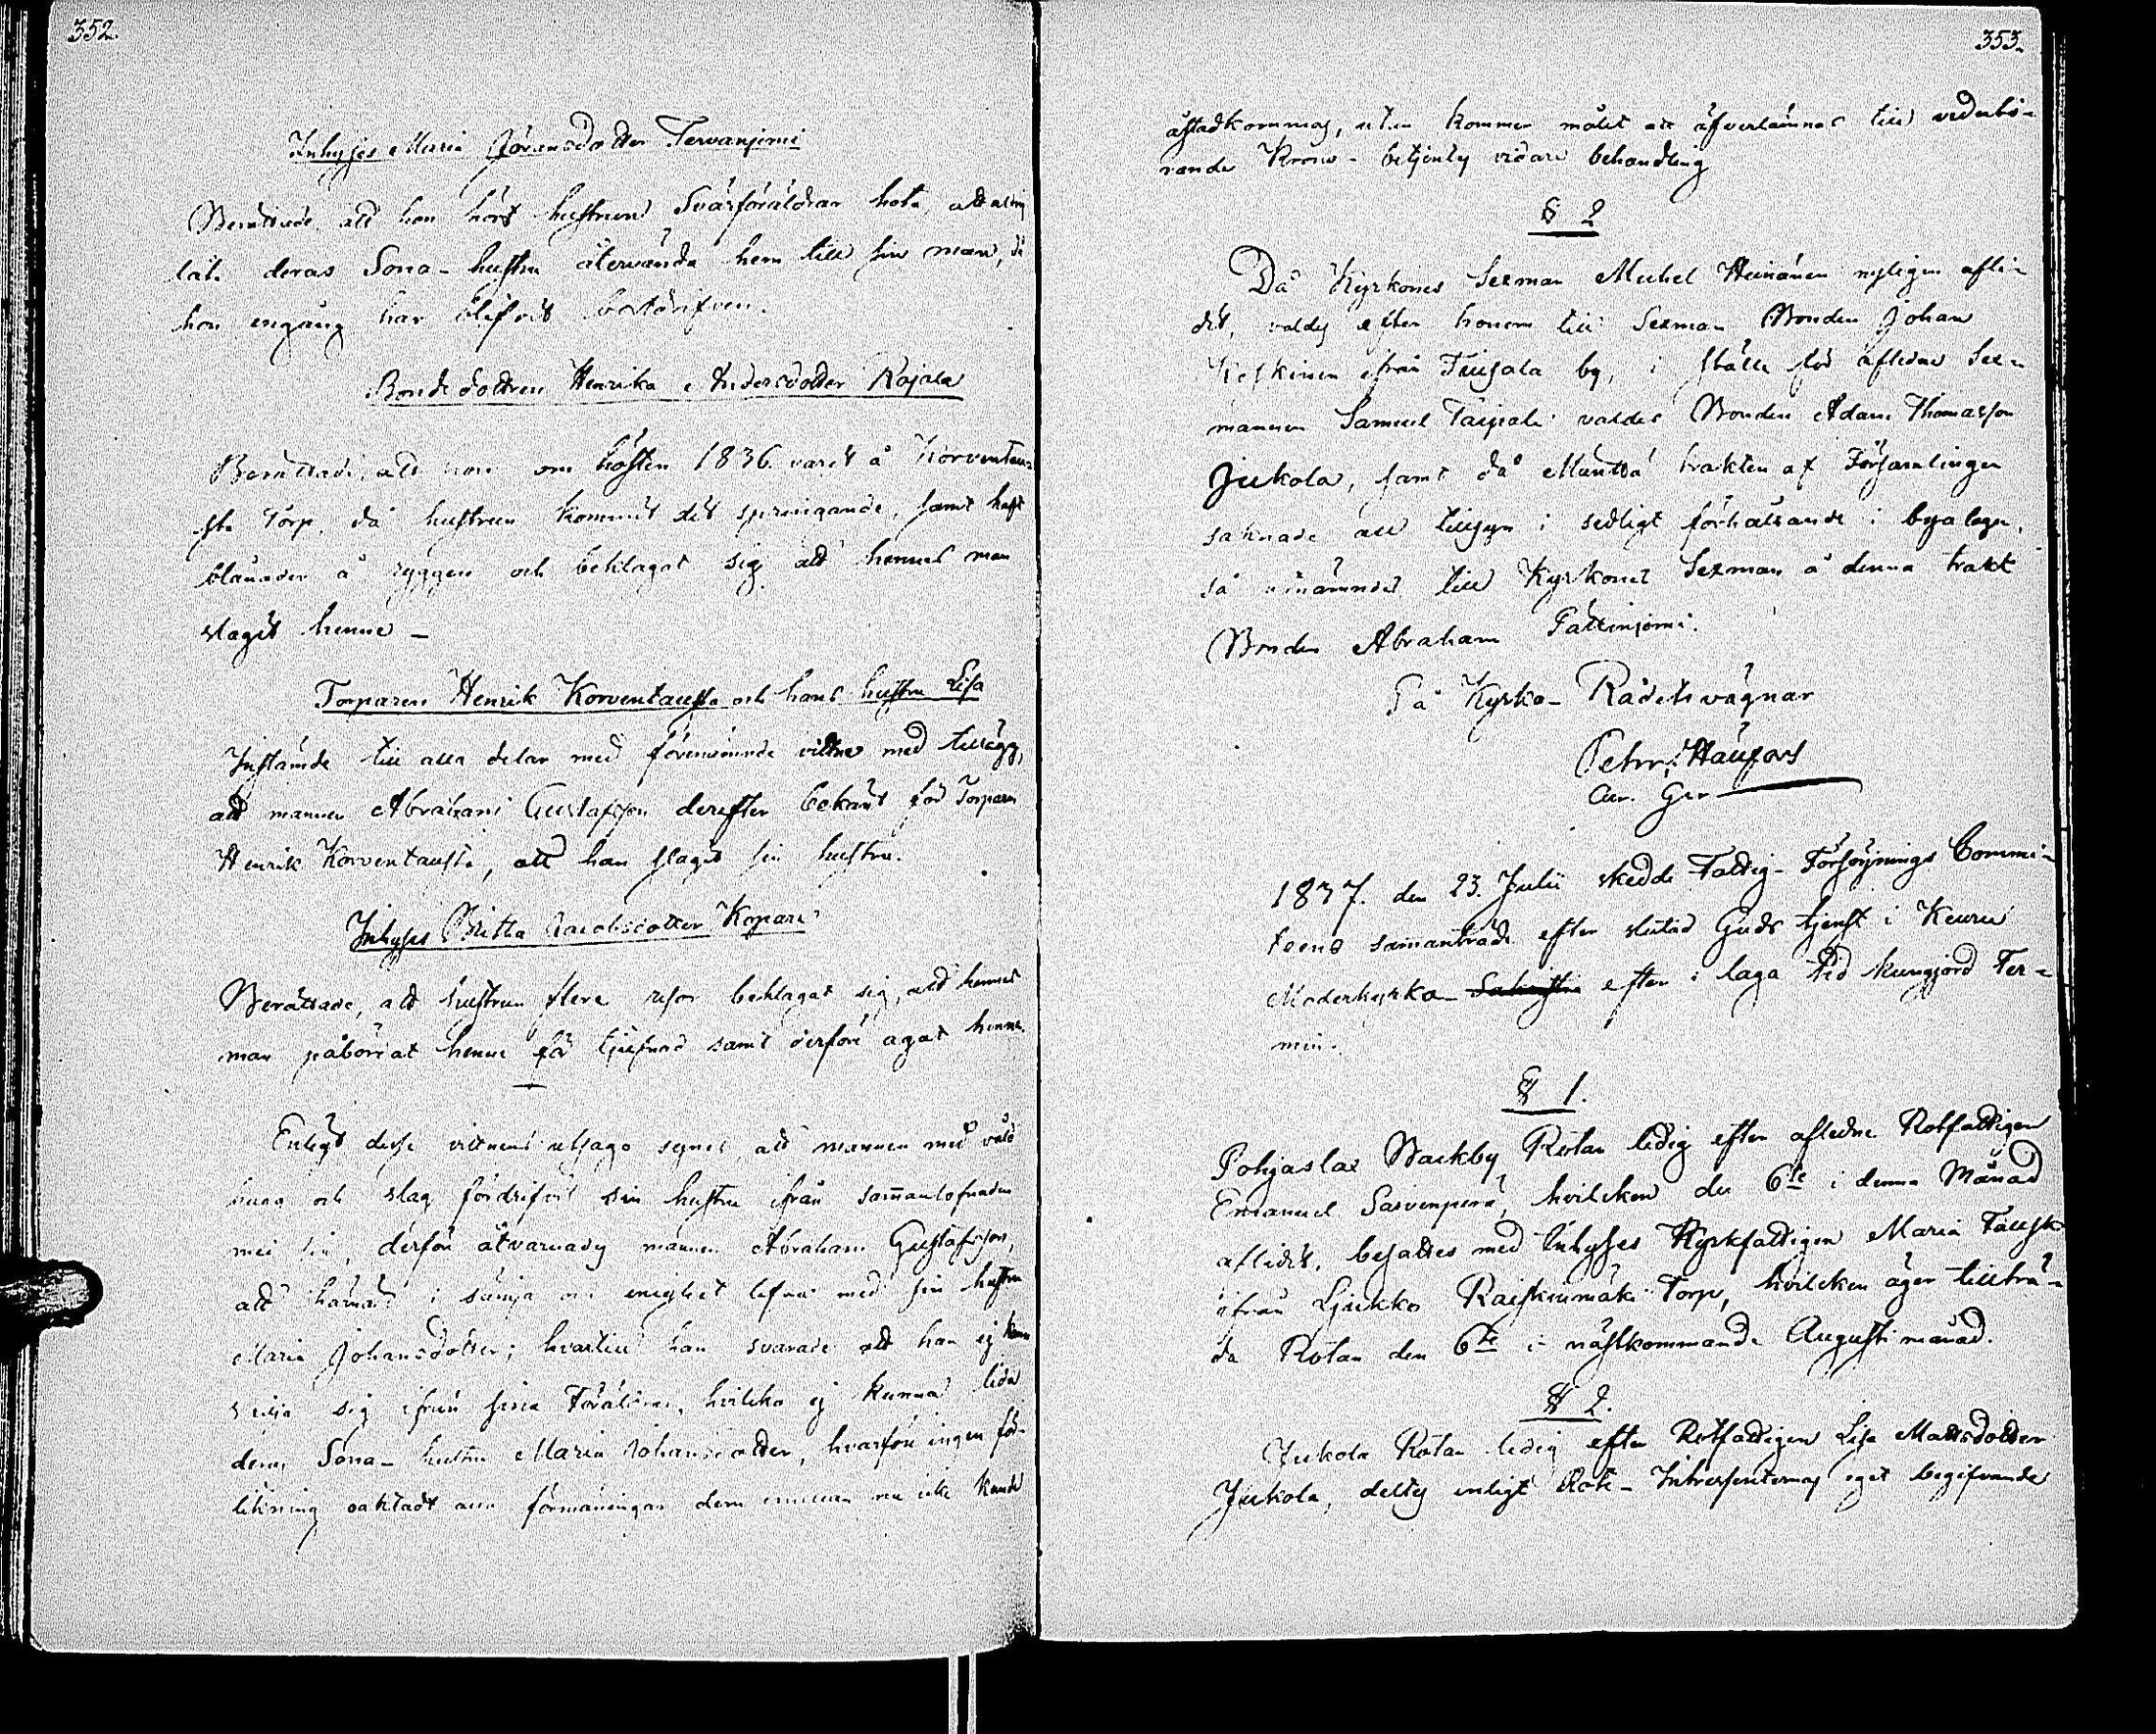 352.
Inhyses Maria Göransdotter Tervanjemi
Berättade, att hon hört hustruns Svärföräldrar hota, att aldrig
låta deras Sona-hustru återvända hem till sin man, då
hon engång har blifvit bortdrifven.
Bondedottren Henrika Andersdotter Rajala
Berättade, att hon om hösten 1836 varit å Korventau-
sta Torp, då hustrun kommit dit springande, samt haft
blånader å ryggen och beklagat sig att hennes man
slagit henne –
Torparen Henrik Korventausta och hans hustru Lisa
Instämde till alla delar med förenämnde vittne med tillägg,
att mannen Abraham Gustafsson derefter bekänt för Torparn
Henrik Korventausta, att han slagit sin hustru.
Inhyses Britta Jacobsdotter Kopari
Berättade, att hustrun flere resor beklagat sig, att hennes
man påbördat henne för tjufnad samt derföre agat henne.
Enligt desse vittnens utsago synes, att mannen med våld
hugg och slag fördrifvit sin hustru ifrån sammanlefnaden
med sin, derföre åtvarnades mannen Abraham Gustafsson,
att härnäst i sämja och enighet lefva med sin hustru
Maria Johansdotter; hvartill han svarade att han ej kan
skilja sig ifrån sina Föräldrar, hvilka ej kunna lida
deras Sona-hustru Maria Johansdotter, hvarföre ingen för-
likning oaktadt alla förmaningar dem emellan nu icke kunde
353.
åstadkommas, utan kommer målet att öfverlämnas till vederbö-
rande Krono-betjents vidare behandling
§ 2
Då Kyrkones Sexman Michel Heinänen nyligen afli-
dit, valdes efter honom till Sexman Bonden Johan
Keskinen ifrån Tiusala by, i ställe för aflidne Sex-
mannen Samuel Taipale valdes Bonden Adam Thomasson
Jukola, samt då Mänttä trakten af Församlingen
saknade all tillsyn i sedligt förhållande i byalagen,
så utnämndes till Kyrkones Sexman å denna trakt
Bonden Abraham Pättinjemi.
På Kyrko-Rådets vägnar
Petr: Häufors
Cur. Ger
1837. den 23. Julii skedde Fattig-Försörjnings Commi-
teens samanträde efter slutad Guds tjenst i Keuru
Moderkyrka Sakristia efter i laga tid kungjord Ter-
min.
§ 1.
Pohjaslax Backby Rotan ledig efter aflidne Rotfattigen
Emanuel Sarvenperä, hvilcken den 6te i denna Månad
aflidit, besattes med Inhyses Kyrkfattigen Maria
ifrån Ljukko Raiskinmäki Torp, hvilcken äger tillträ-
da Rotan den 6te i nästkommande Augusti månad.
§ 2.
Jukola Rotan ledig efter Rotfattigen Lisa Mattsdotter
Jukola, deltes enligt Rote-Intressenternas eget begifvande